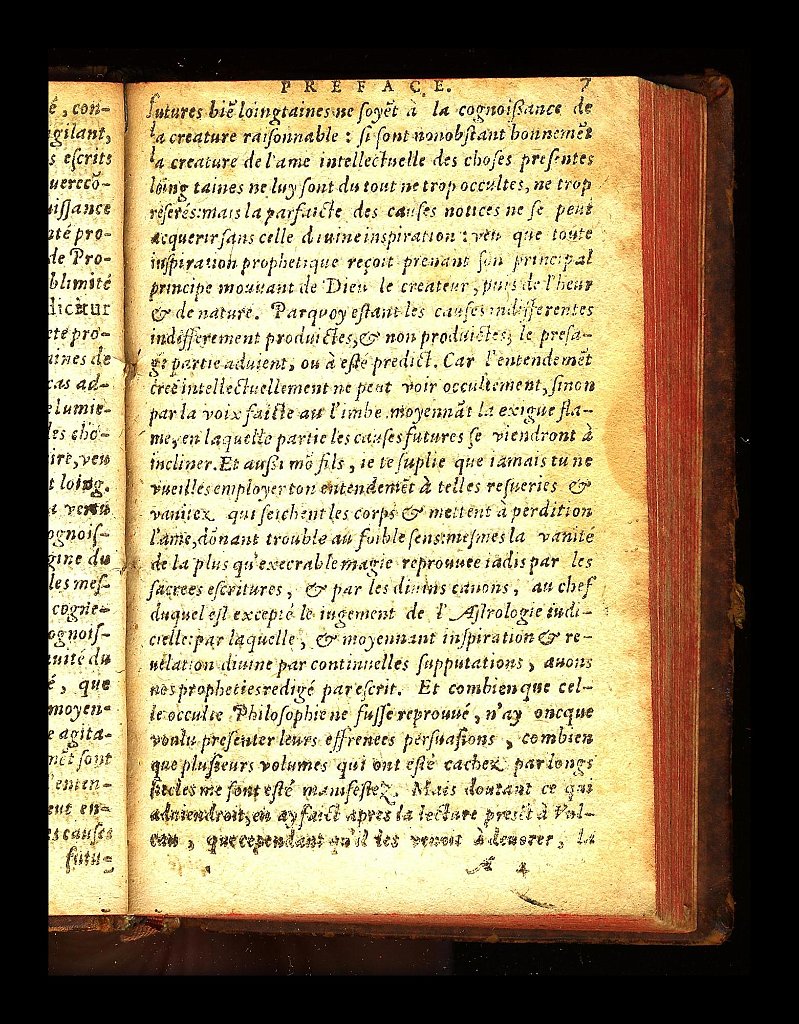 é, con-
igilant,
s eſcrits
uerecō-
iſſance
té pro-
de Pro-
blimité
dicitur
ete pro-
aines de
cas ad-
e lumie-
les cho-
ire, veu
t loing.
a vertu
ognoiſ-
gine du
les meſ-
cogne-
ognoiſ-
uité du
é, que
moyen-
e agita-
nēt ſont
enten-
eut en-
es cauſes
futu-
PREFACE. 7
futures biē loingtaines ne ſoyēt à la cognoiſſance de
la creature raiſonnable : ſi ſont nonobſtant bonnemēt
la creature de l'ame intellectuelle des choſes preſentes
loing taines ne luy ſont du tout ne trop occultes, ne trop
reſerés: mais la parfaicte des cauſes notices ne ſe peut
acquerir ſans celle diuine inſpiration : veu que toute
inſpiration prophetique reçoit prenant ſon principal
principe mouuant de Dieu le createur, puis de l'heur
& de nature. Parquoy eſtant les cauſes indifferentes
indifferement produictes, & non produictes, le preſa-
ge partie aduient, ou à eſté predict. Car l'entendemēt
creé intellectuellement ne peut voir occultement, ſinon
par la voix faicte au l'imbe moyennāt la exigue fla-
me, en laquelle partie les cauſes futures ſe viendront à
incliner. Et auſſi mō fils, ie te ſuplie que iamais tu ne
vueilles employer ton entendemēt à telles reſueries &
vanitez qui ſeichent les corps & mettent à perdition
l'ame, dōnant trouble au foible ſens: meſmes la vanité
de la plus qu'execrable magie reprouuee iadis par les
ſacrees eſcritures, & par les diuins canons, au chef
duquel eſt excepté le iugement de l'Aſtrologie iudi-
cielle: par laquelle, & moyennant inſpiration & re-
uelation diuine par continuelles ſupputations, auons
nos propheties redigé par eſcrit. Et combien que cel-
le occulte Philoſophie ne fuſſe reprouué, n'ay oncque
voulu preſenter leurs effrenees perſuaſions, combien
que pluſieurs volumes qui ont eſté cachez par longs
ſiecles me ſont eſté manifeſtez. Mais doutant ce qui
aduiendroit, en ay faict apres la lecture preſēt à Vul-
can, que cependant qu'il les venoit à deuorer, la
A 4